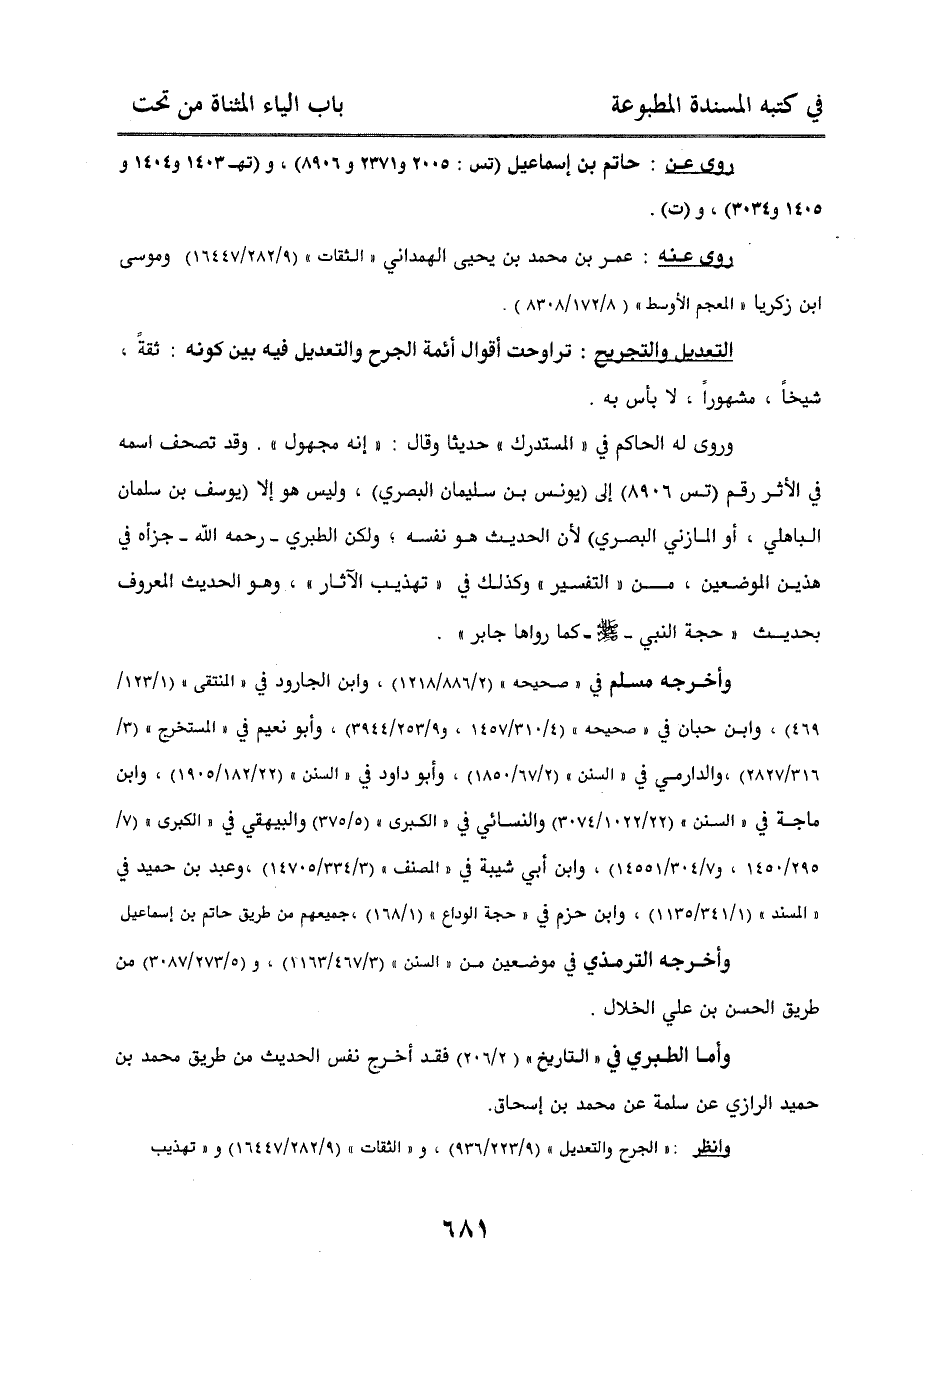 في كتبه المسندة المطبوعة باب الياء المثناة من تحت
روى عن : حاتم بن إسماعيل (تس : ٢٠٠٥ و٢٣٧١ و ٨٩٠٦) ، و (تهـ ١٤٠٣ و١٤٠٤ و
١٤٠٥ و٣٠٣٤) ، و (ت) .
روى عنه : عمر بن محمد بن يحيى الهمداني « الثقات » (١٦٤٤٧/٢٨٢/٩) وموسى
ابن زكريا « المعجم الأوسط » ( ٨٣٠٨/١٧٢/٨ ) .
التعديل والتجريح : تراوحت أقوال أئمة الجرح والتعديل فيه بين كونه : ثقةً ،
شيخاً ، مشهوراً ، لا بأس به .
وروى له الحاكم في « المستدرك » حديثا وقال : « إنه مجهول » . وقد تصحف اسمه
في الأثر رقم (تس ٨٩٠٦) إلى (يونس بن سليمان البصري) ، وليس هو إلا (يوسف بن سلمان
الباهلي ، أو المازني البصري) لأن الحديث هو نفسه ؛ ولكن الطبري ـ رحمه الله ـ جزأه في
هذين الموضعين ، من « التفسير » وكذلك في « تهذيب الآثار » ، وهو الحديث المعروف
بحديث « حجة النبي ـ ﷺ ـ كما رواها جابر » .
وأخرجه مسلم في « صحيحه » (١٢١٨/٨٨٦/٢) ، وابن الجارود في « المنتقى » (١٢٣/١/
٤٦٩) ، وابن حبان في « صحيحه » (١٤٥٧/٣١٠/٤ ، و٣٩٤٤/٢٥٣/٩) ، وأبو نعيم في « المستخرج » (٣/
٢٨٢٧/٣١٦) ،والدارمي في « السنن » (١٨٥٠/٦٧/٢) ، وأبو داود في « السنن » (١٩٠٥/١٨٢/٢٢) ، وابن
ماجة في « السنن » (٣٠٧٤/١٠٢٢/٢٢) والنسائي في « الكبرى » (٣٧٥/٥) والبيهقي في « الكبرى » (٧/
١٤٥٠/٢٩٥ ، و١٤٥٥١/٣٠٤/٧) ، وابن أبي شيبة في « المصنف » (١٤٧٠٥/٣٣٤/٣) ،وعبد بن حميد في
« المسند » (١١٣٥/٣٤١/١) ، وابن حزم في « حجة الوداع » (١٦٨/١) ،جميعهم من طريق حاتم بن إسماعيل
وأخرجه الترمذي في موضعين من « السنن » (١١٦٣/٤٦٧/٣) ، و (٣٠٨٧/٢٧٣/٥) من
طريق الحسن بن علي الخلال .
وأما الطبري في « التاريخ » ( ٢٠٦/٢) فقد أخرج نفس الحديث من طريق محمد بن
حميد الرازي عن سلمة عن محمد بن إسحاق.
وانظر :« الجرح والتعديل » (٩٣٦/٢٢٣/٩) ، و « الثقات » (١٦٤٤٧/٢٨٢/٩) و « تهذيب
٦٨١